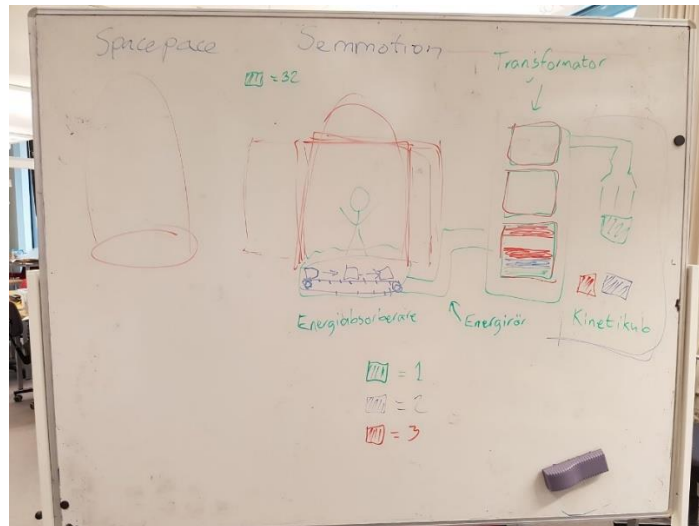 Spacepace
Semmotion
Transformator
= 32
Energiabsorberare
Energirör
Kinetikub
= 1
= 2
= 3